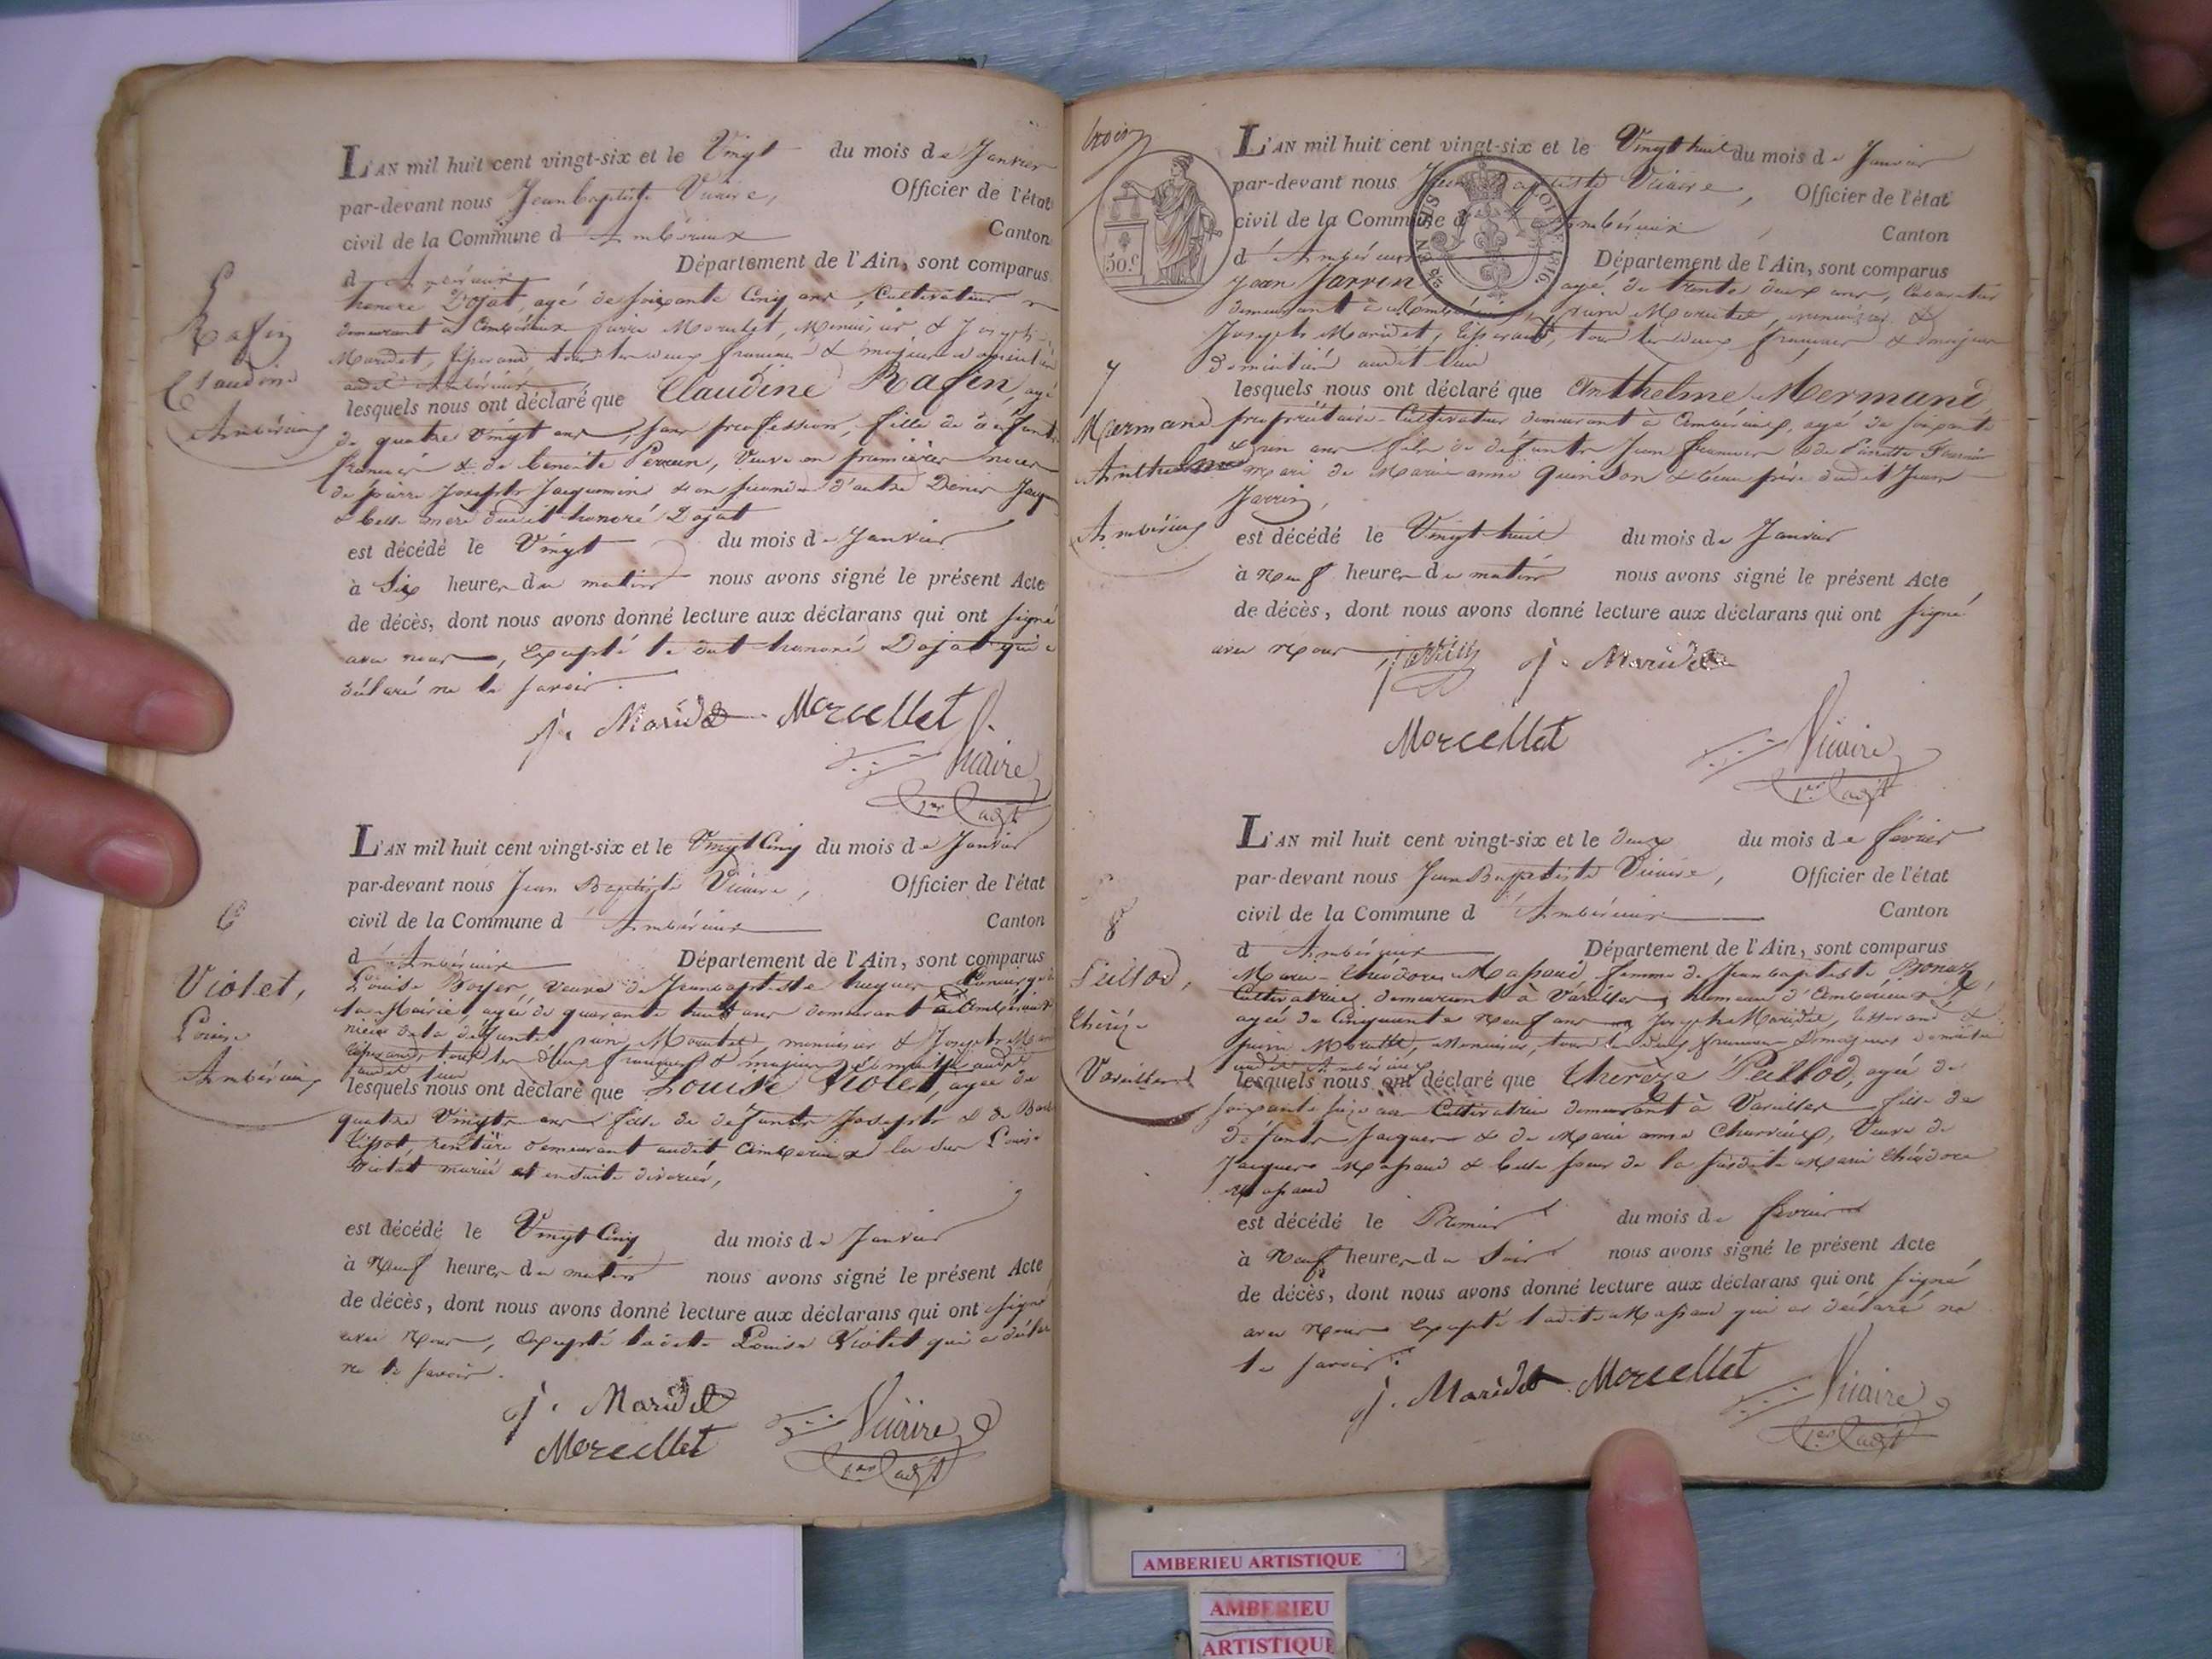 L'AN mil huit cent vingt-six et le Vingt du mois de Janvier
par-devant nous Jean baptiste Vicaire, Officier de l'état
civil de la Commune d'Ambérieux Canton
d'Ambérieux Département de l'Ain, sont comparus
honoré Dojat, agé de soixante Cinq ans, Cultivateur
demeurant à Ambérieux pierre Morcellet, Menuisier & Joseph
Maridet, tisserand tous les deux français & majeurs domiciliés
audit Ambérieux
lesquels nous ont déclaré que Claudine Rafin, agé
de quatre vingt ans, sans profession, fille de défunts
françois & de benoite Perrin, Veuve en premières noces
de pierre Joseph Jacquemin & en secondes d'autre Dojat
& belle mere dudit honoré Dojat
est décédé le Vingt du mois de Janvier
à Six heures du matin nous avons signé le présent Acte
de décès, dont nous avons donné lecture aux déclarans qui ont signé
avec nous, Excepté le dit honoré Dojat qui a
déclaré ne le savoir.
j. Maridet Morcellet
Vicaire
1er adjt
5
Rafin
Claudine
Ambérieux
L'AN mil huit cent vingt-six et le Vingt Cinq du mois de Janvier
par-devant nous Jean Baptiste Vicaire, Officier de l'état
civil de la Commune d'Ambérieux Canton
d'Ambérieux Département de l'Ain, sont comparus
Louise Boyer, veuve de Jean baptiste huguer Concierge à
la Mairie, agée de quarante huit ans demeurant à Ambérieux
nièce de la défunte, pierre Morcellet, menuisier & Joseph Maridet
tisserand, tous les deux français & majeurs domiciliés
audit lieu
lesquels nous ont déclaré que Louise Violet, agée de
quatre Vingts ans fille de défunts Joseph & de
Tissot, rentière demeurant audit Ambérieux la dite Louise
Violet mariée et ensuite divorcée,
est décédé le Vingt Cinq du mois de Janvier
à Neuf heures du matin nous avons signé le présent Acte
de décès, dont nous avons donné lecture aux déclarans qui ont signé
avec Nous, Excepté ladite Louise Violet qui a déclaré
ne le savoir.
j. Maridet
Morcellet Vicaire
1er adjt
6
Violet,
Louise
Ambérieux
trois
50 c
L'AN mil huit cent vingt-six et le Vingt huit du mois de Janvier
par-devant nous Jean Baptiste Vicaire, Officier de l'état
civil de la Commune d'Ambérieux Canton
d'Ambérieux Département de l'Ain, sont comparus
Jean Jarrin agé de trente deux ans, Cabaretier
demeurant à Ambérieux, pierre Morcellet, menuisier &
Joseph Maridet, tisserand, tous les deux français & majeurs
domiciliés audit lieu
lesquels nous ont déclaré que Anthelme Mermand
propriétaire-Cultivateur demeurant à Ambérieux, agé de soixante
ans fils de défunts Jean françois & de
mari de Marie anne Quinson & beau père dudit Jean
Jarrin,
est décédé le Vingt-huit du mois de Janvier
à Neuf heures du matin nous avons signé le présent Acte
de décès, dont nous avons donné lecture aux déclarans qui ont signé
avec Nous
jarrin j. Maridet
Morcellet Vicaire
1er adjt
7
Mermand
Anthelme
Ambérieux
LOI DE 1816
L'AN mil huit cent vingt-six et le deux du mois de février
par-devant nous Jean Baptiste Vicaire, Officier de l'état
civil de la Commune d'Ambérieux Canton
d'Ambérieux Département de l'Ain, sont comparus
Marie-Théodore Massaud, femme de Jean baptiste Bonaz,
Cultivatrice demeurant à Vareilles, hameau d'Ambérieux,
agée de Cinquante Neuf ans, Joseph Maridet, tisserand &
pierre Morcellet, Menuisier, tous les deux français & majeurs domiciliés
audit Ambérieux
lesquels nous ont déclaré que thérèze Peillod, agée de
soixante seize ans Cultivatrice demeurant à Vareilles fille de
défunts Jacques & de Marie anne Charvieux, Veuve de
Jacques Massaud & belle soeur de la susdite Marie théodore
Massaud
est décédé le Premier du mois de février
à Neuf heures du Soir nous avons signé le présent Acte
de décès, dont nous avons donné lecture aux déclarans qui ont signé
avec Nous Excepté ladite Massaud qui a déclaré ne
le savoir.
j. Maridet Morcellet Vicaire
1er adjt
8
Peillod,
thérèze
Vareilles
AMBERIEU ARTISTIQUE
AMBERIEU
ARTISTIQUE